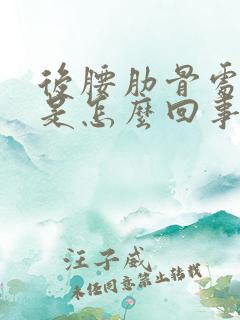 後腰肋骨處
是怎麼回事
汪子威
未经同意禁止转载